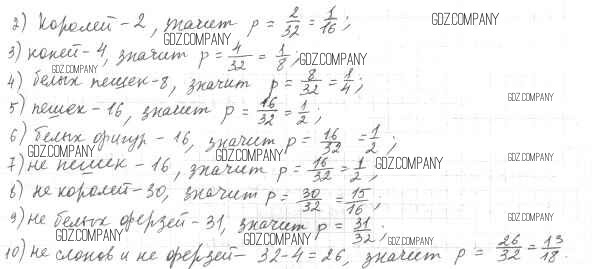 2) Королей - 2, значит p = 2/32 = 1/16; GDZ.COMPANY
GDZ.COMPANY
3) коней - 4, значит p = 4/32 = 1/8; GDZ.COMPANY
GDZ.COMPANY
4) белых пешек - 8, значит p = 8/32 = 1/4; GDZ.COMPANY
5) пешек - 16, значит p = 16/32 = 1/2;
6) белых фигур - 16, значит p = 16/32 = 1/2;
GDZ.COMPANY GDZ.COMPANY GDZ.COMPANY GDZ.COMPANY
7) не пешек - 16, значит p = 16/32 = 1/2;
8) не королей - 30, значит p = 30/32 = 15/16;
9) не белых ферзей - 31, значит p = 31/32; GDZ.COMPANY
GDZ.COMPANY GDZ.COMPANY GDZ.COMPANY
10) не слонов и не ферзей - 32-4 = 26, значит p = 26/32 = 13/18.